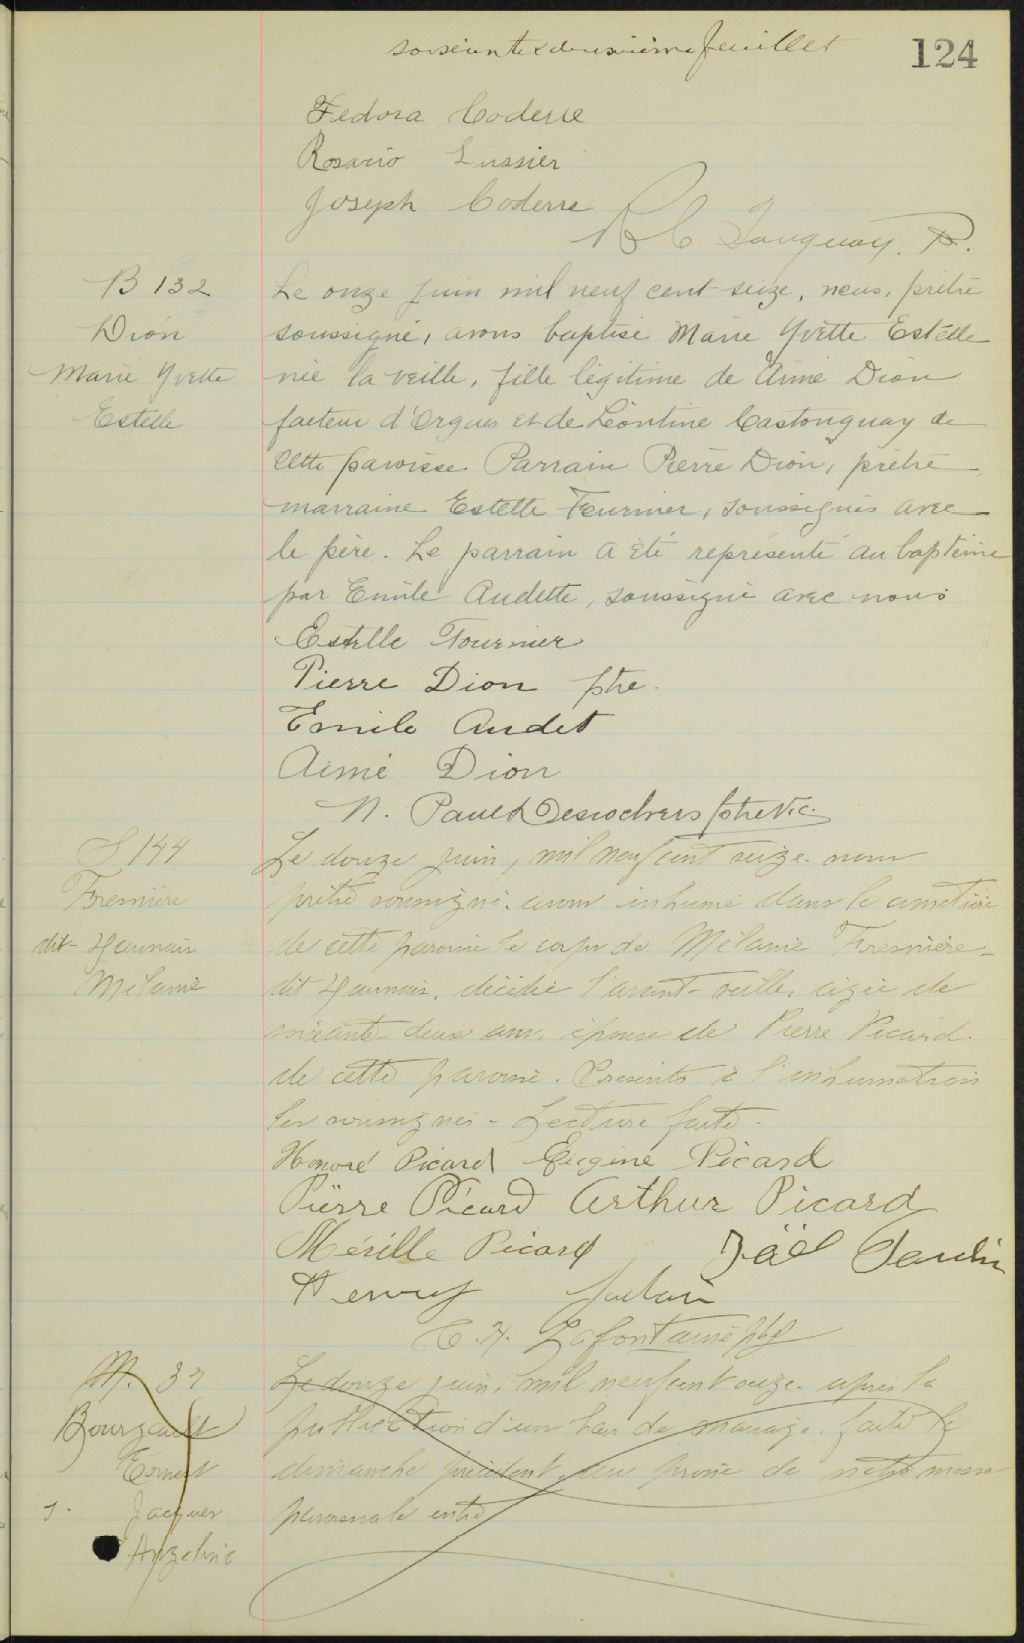 soixante deuxième feuillet
124
Fedora Coderre
Rosario Lussier
Joseph Coderre
Tanguay. P.
B 132
Dion
Marie Yvette
Estelle
Le onze juin mil neuf cent seize, nous, prêtre
soussigné, avons baptisé Marie Yvette Estelle
née la veille, fille légitime de Aimé Dion
facteur d'orgues et de Léontine Castonguay de
cette paroisse. Parrain Pierre Dion, prêtre
marraine Estelle Fournier, soussignés avec
le père. Le parrain a été représenté au baptême
par Emile Audette, soussigné avec nous
Estelle Fournier
Pierre Dion ptre.
Emile Audet
Aimé Dion
N. Paul Desrochers ptre Vic.
S 144
Fresnière
dit
Mélanie
Le douze juin, mil neuf cent seize. nous
prêtre soussigné, avons inhumé dans le cimetière
de cette paroisse le corps de Mélanie Fresnière
dit décédée l'avant-veille, âgée de
soixante-deux ans, épouse de Pierre Picard.
de cette paroisse. Présents à l'inhumation
les soussignés - Lecture faite.
Honoré Picard Eugène Picard
Pierre Picard Arthur Picard
Mérille Picard
Henry
C. H. Lafontaine ptre
M. 37
Bourgault
Ernest
&
Jacques
Angelina
Le douze juin, mil neuf cent seize. après la
publication d'un ban de mariage. faite le
dimanche précédent au prône de notre messe
paroissiale entre